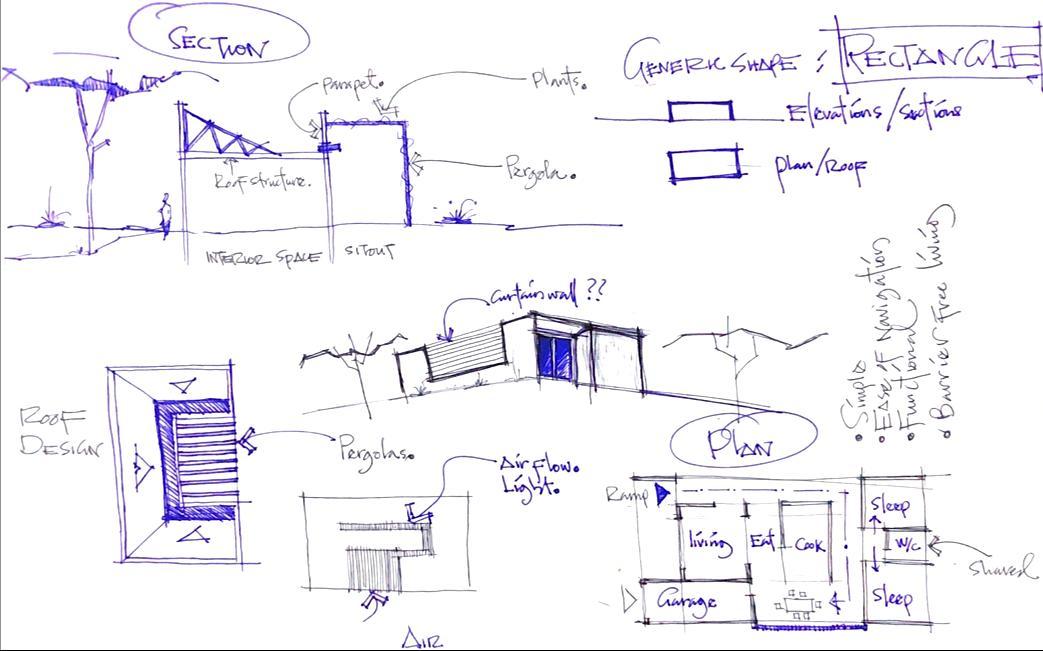 SECTION
GENERIC SHAPE : RECTANGLE
Parapet.
Plants.
Elevations/Sections
Pergola.
Plan/Roof
Roof structure.
INTERIOR SPACE
SITOUT
Curtain wall ??
• Simple
• Ease of Navigation
• Functional
• Barrier Free living
ROOF
DESIGN
Pergolas.
Air flow.
Light.
AIR
PLAN
Ramp
Sleep
living
Eat
Cook
W/C
Shared
Garage
Sleep